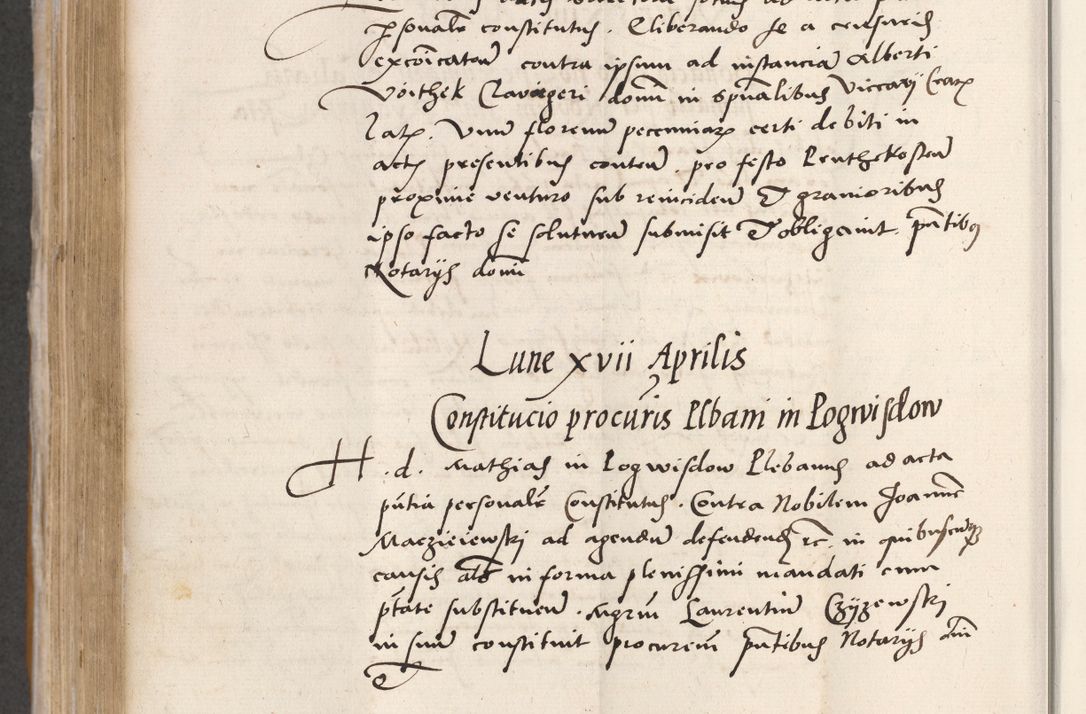 personalr constitutus. Cliberando se a censuris
excoicatam contra ipsum ad instanciam Alberti
Voithek Clavigeri domi in spualibus Viccarij Crax
lata. Vnum florenum pecuniarx certi debiti in
actis presentibus contem pro festo Penthekosten
proxime venturo sub reincidem & gravioribus
ipso facto se soluturum submisit & obligavit. pntibus
Notarijs domi
Lune xvii Aprilis
Constitucio procuris Plbani in Pogwisdow
H. d. Mathias in Pogwisdow Plebanus ad acta
pntia personalr Constitutus. Contra Nobilem Joannem
Maczieiewski ad agendum defendendum rc in quibuscunque
causis als in forma plenissimi mandati cum
ptate substituen. Mgrum Laurentium Czyzewski
in suum constituit procurem pntibus Notarijs dni